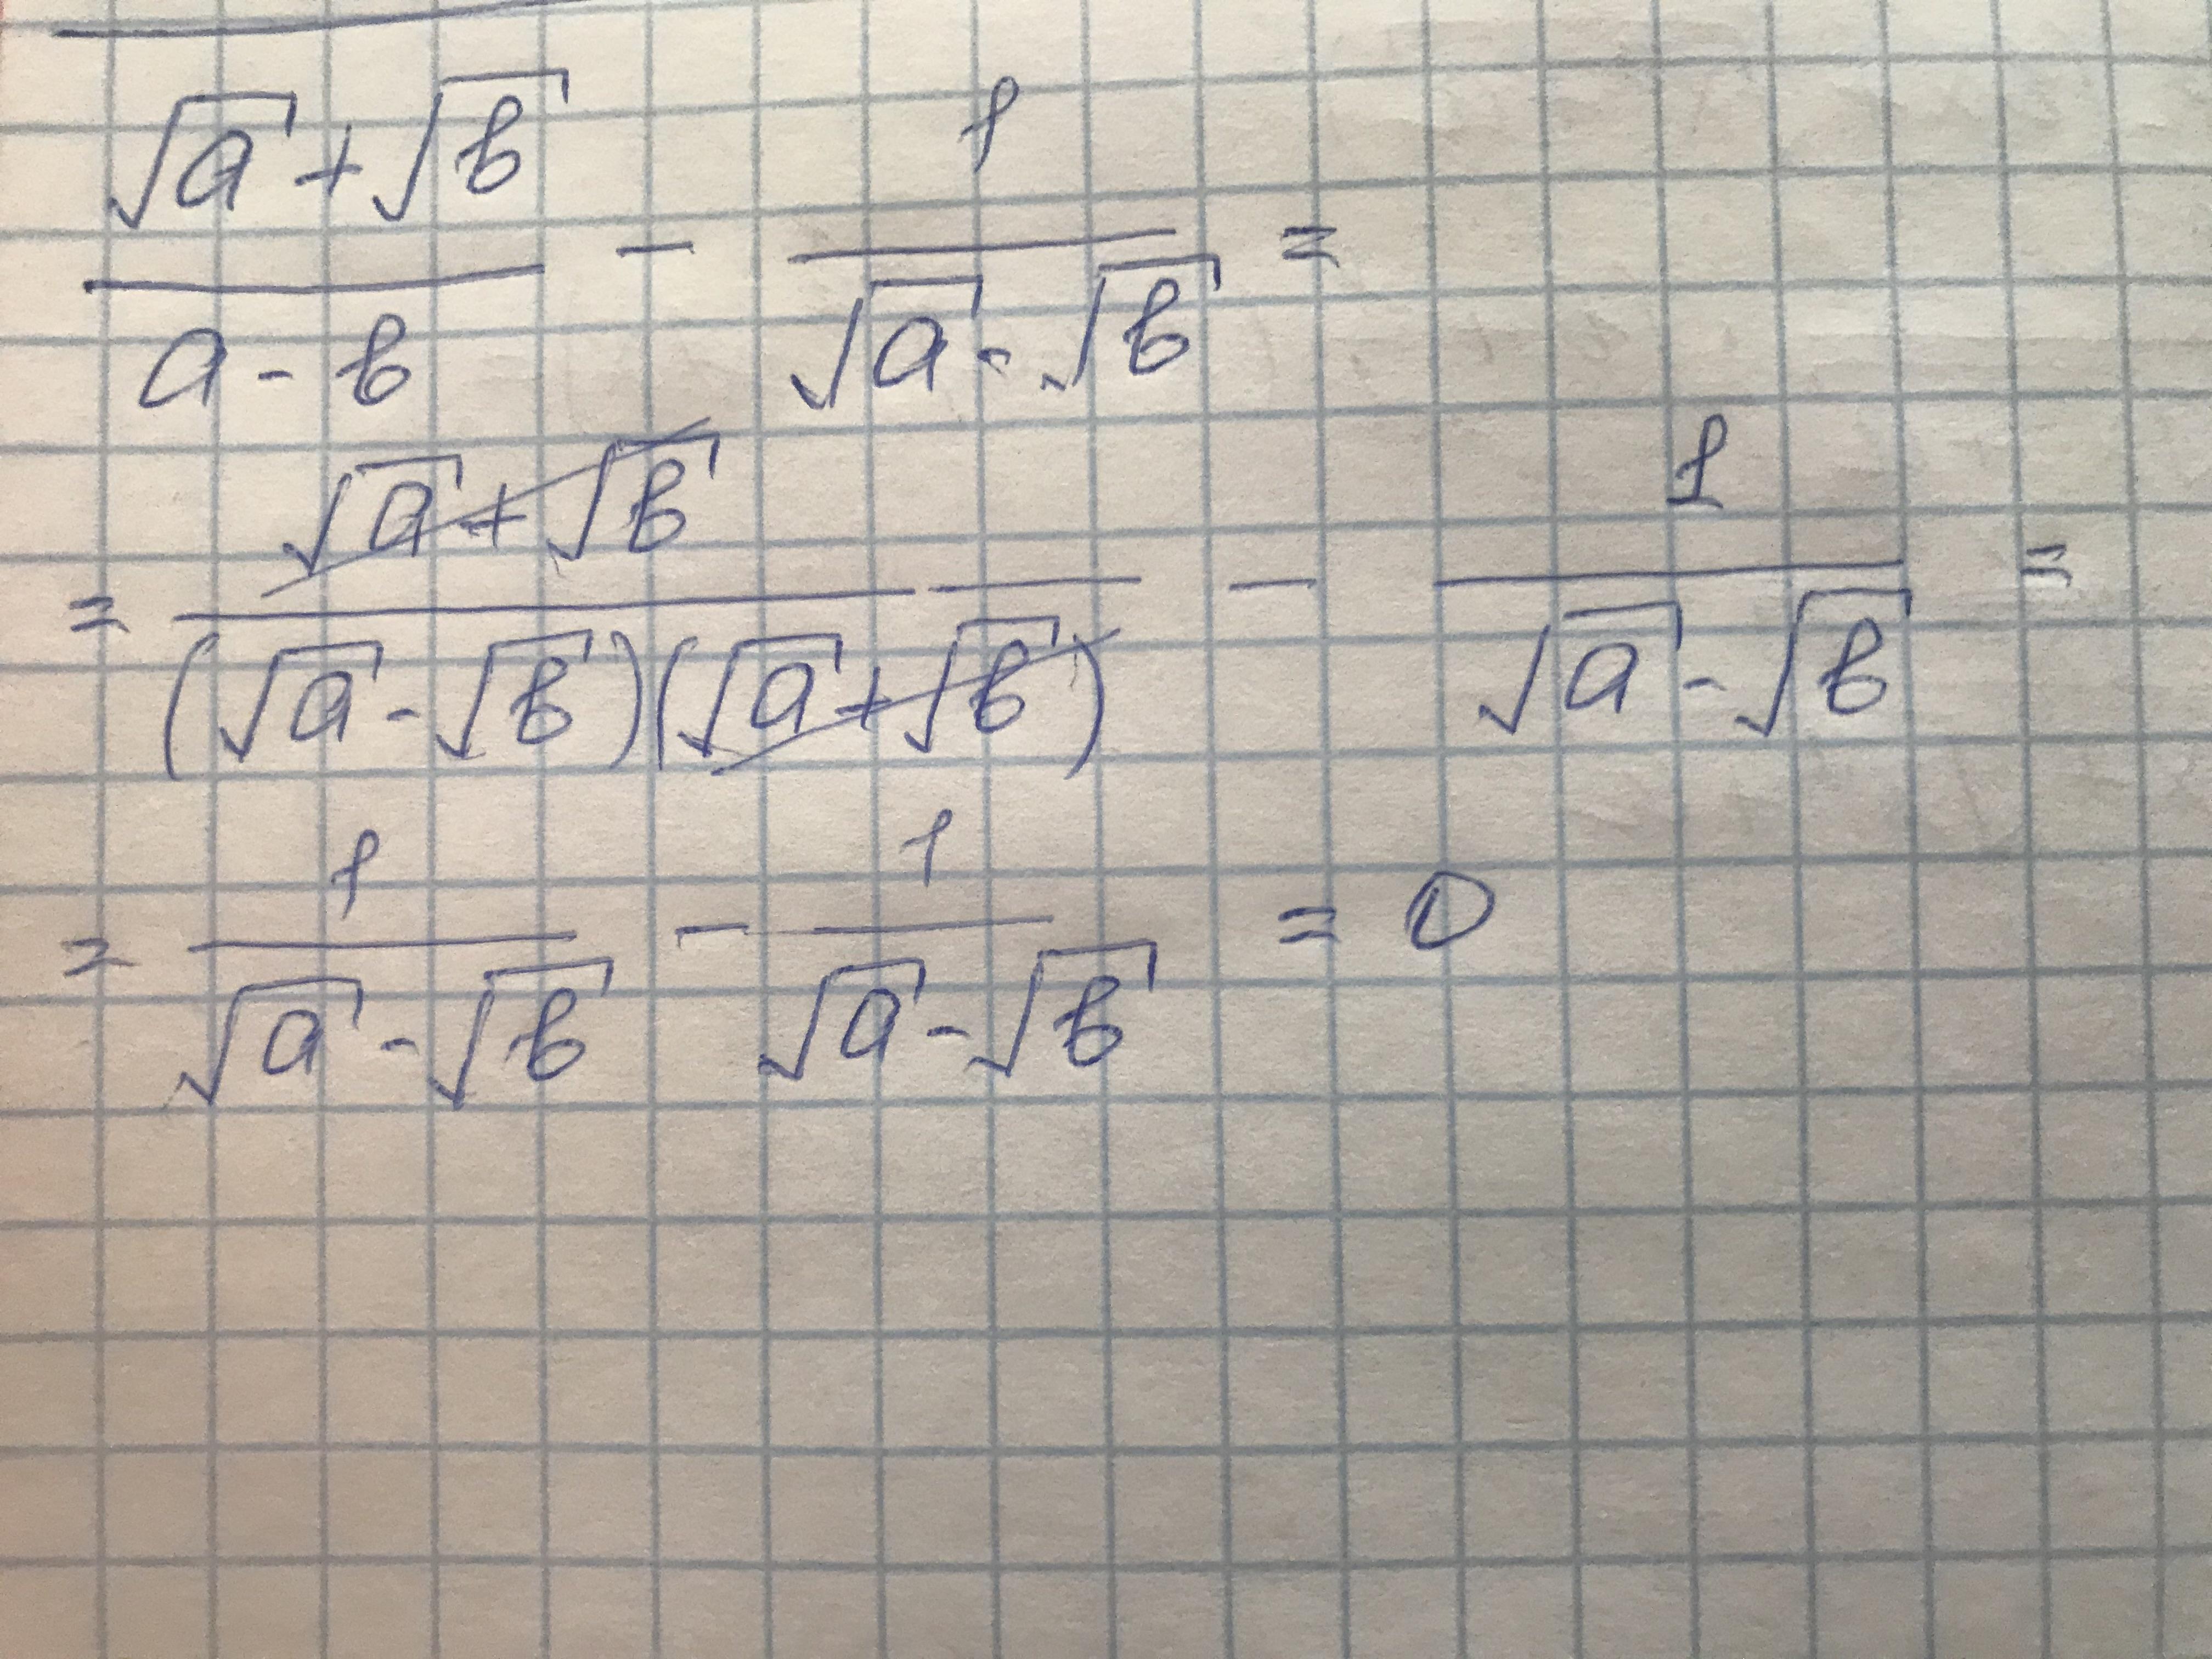 (√a + √b)/(a - b) - 1/(√a - √b) =
= (√a + √b)/((√a - √b)(√a + √b)) - 1/(√a - √b) =
= 1/(√a - √b) - 1/(√a - √b) = 0